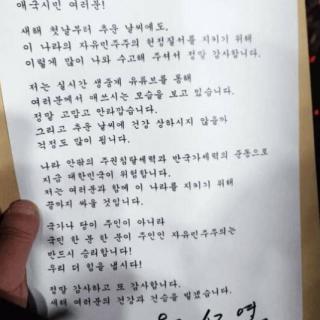 애국시민 여러분!
새해 첫날부터 추운 날씨에도,
이 나라의 자유민주주의 헌정질서를 지키기 위해
이렇게 많이 나와 수고해 주셔서 정말 감사합니다.
저는 실시간 생중계 유튜브를 통해
여러분께서 애쓰시는 모습을 보고 있습니다.
정말 고맙고 안타깝습니다.
그리고 추운 날씨에 건강 상하시지 않을까
걱정도 많이 됩니다.
나라 안팎의 주권침탈세력과 반국가세력의 준동으로
지금 대한민국이 위험합니다.
저는 여러분과 함께 이 나라를 지키기 위해
끝까지 싸울 것입니다.
국가나 당이 주인이 아니라
국민 한 분 한 분이 주인인 자유민주주의는
반드시 승리합니다!
우리 더 힘을 냅시다!
정말 감사하고 또 감사합니다.
새해 여러분의 건강과 건승을 빌겠습니다.